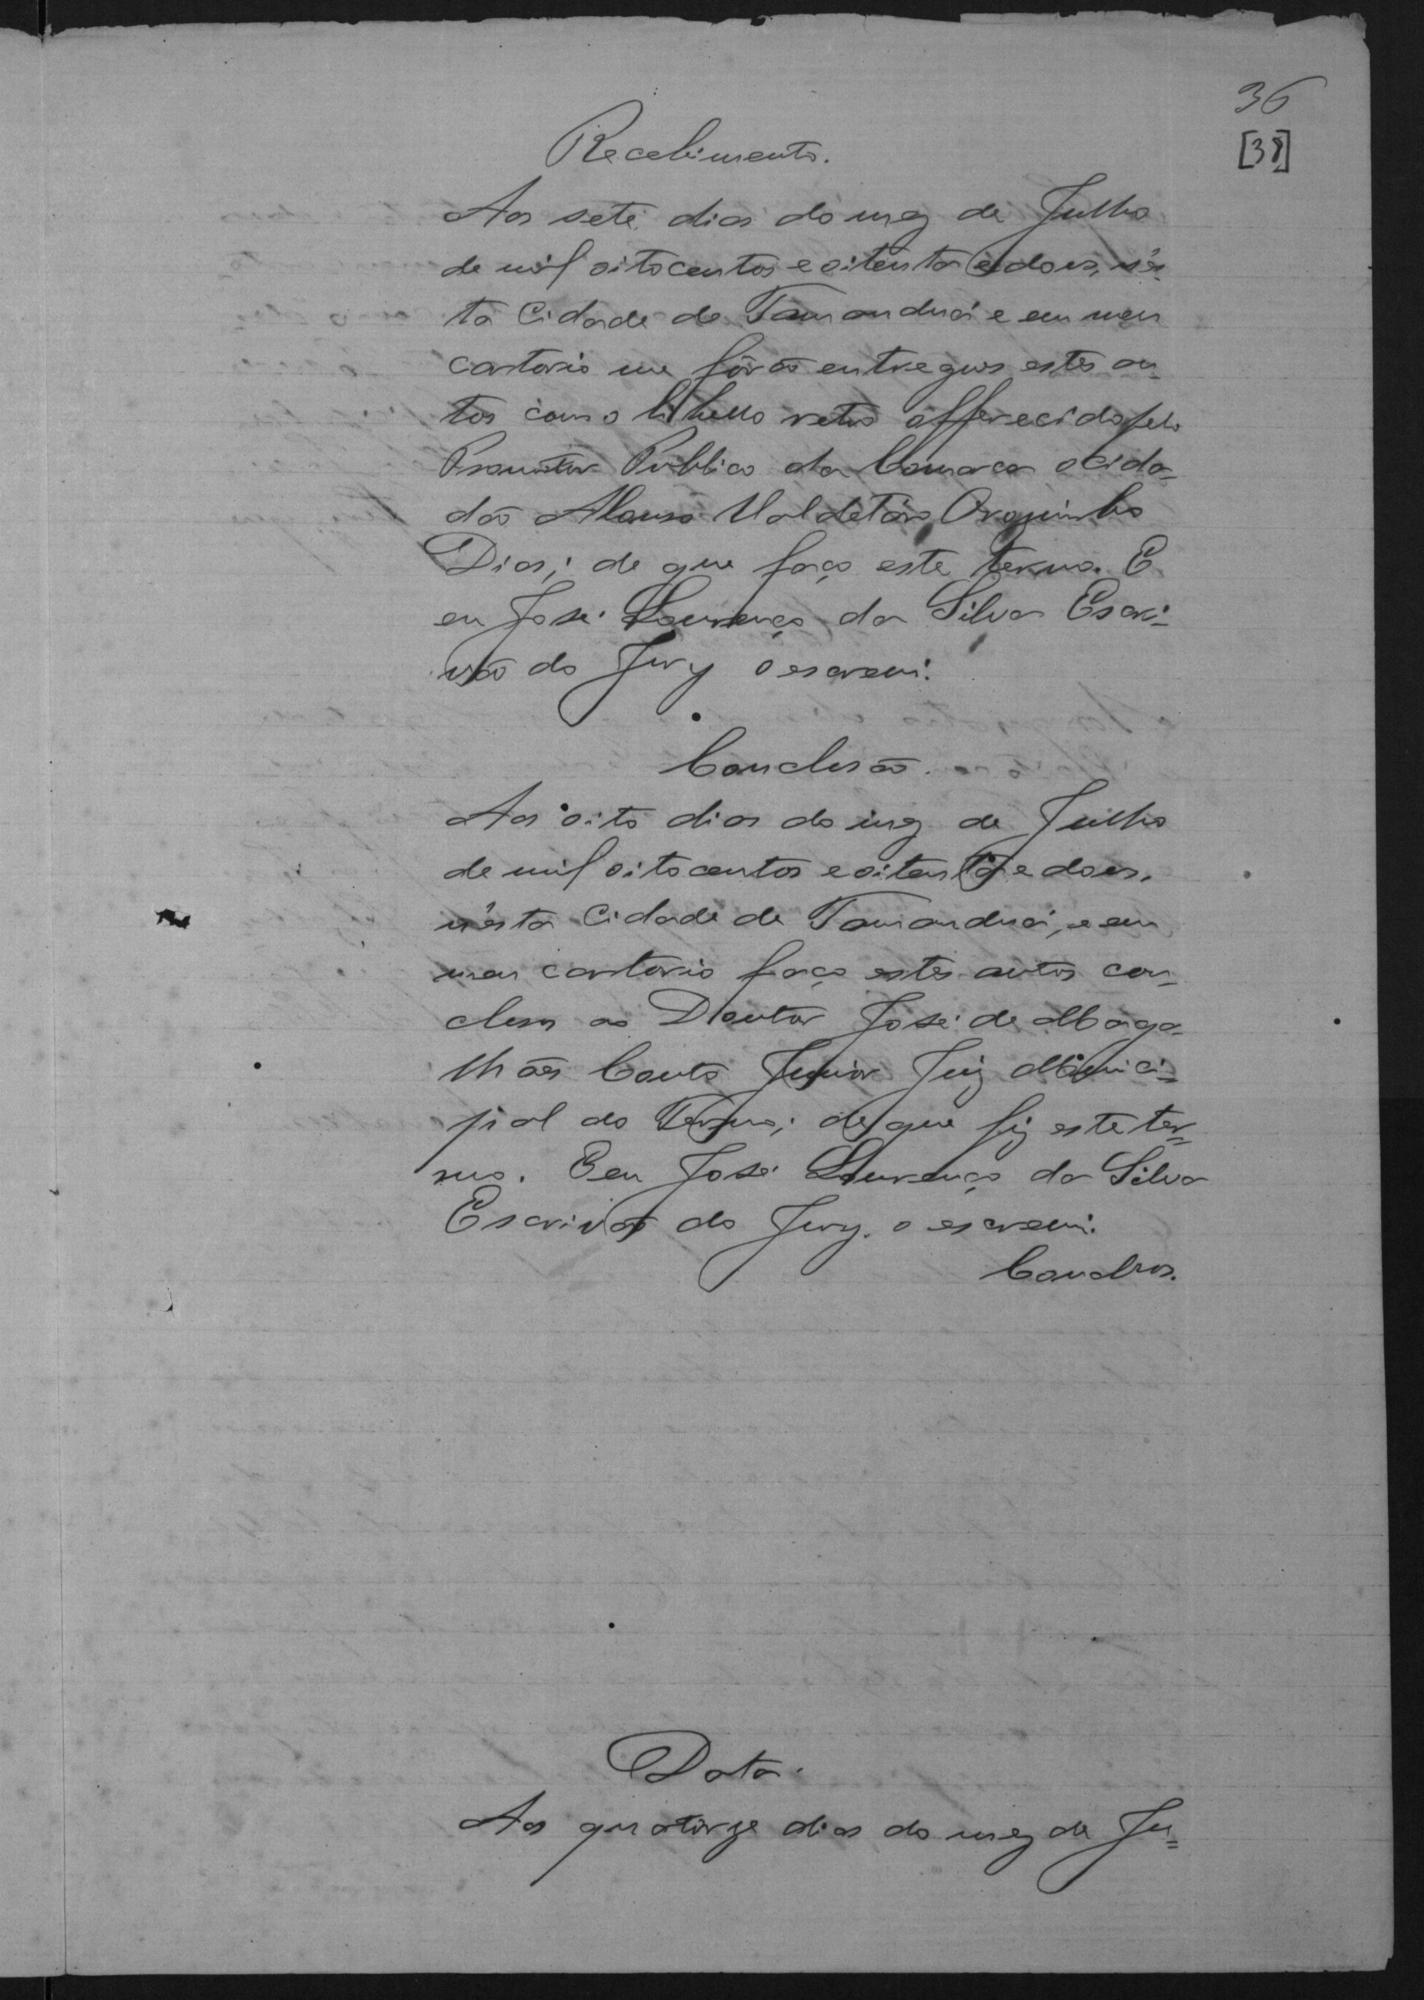 36
[38]
Recebimento.
Aos sete dias do mez de Julho
de mil oitocentos e oitenta e dois, n'es-
ta Cidade de Tamanduá e em meu
cartorio me fôrão entregues estes au-
tos com o libello retro offerecido pelo
Promotor Publico da Comarca o cida-
dão Valdetaro
Dias; de que faço este termo. E
eu José Lourenço da Silva Escri-
vão do Jury o escrevi.
Conclusão.
Aos oito dias do mez de Julho
de mil oitocentos e oitenta e dois,
n'esta Cidade de Tamanduá, e em
meu cartorio faço estes autos con-
clusos ao Doutor José de Maga-
lhães Couto Junior Juiz Munici-
pial do Termo; de que fiz este ter-
mo. E eu José Lourenço da Silva
Escrivão do Jury. o escrevi.
Conclusos.
Data.
Aos quatorze dias do mez de Ju=